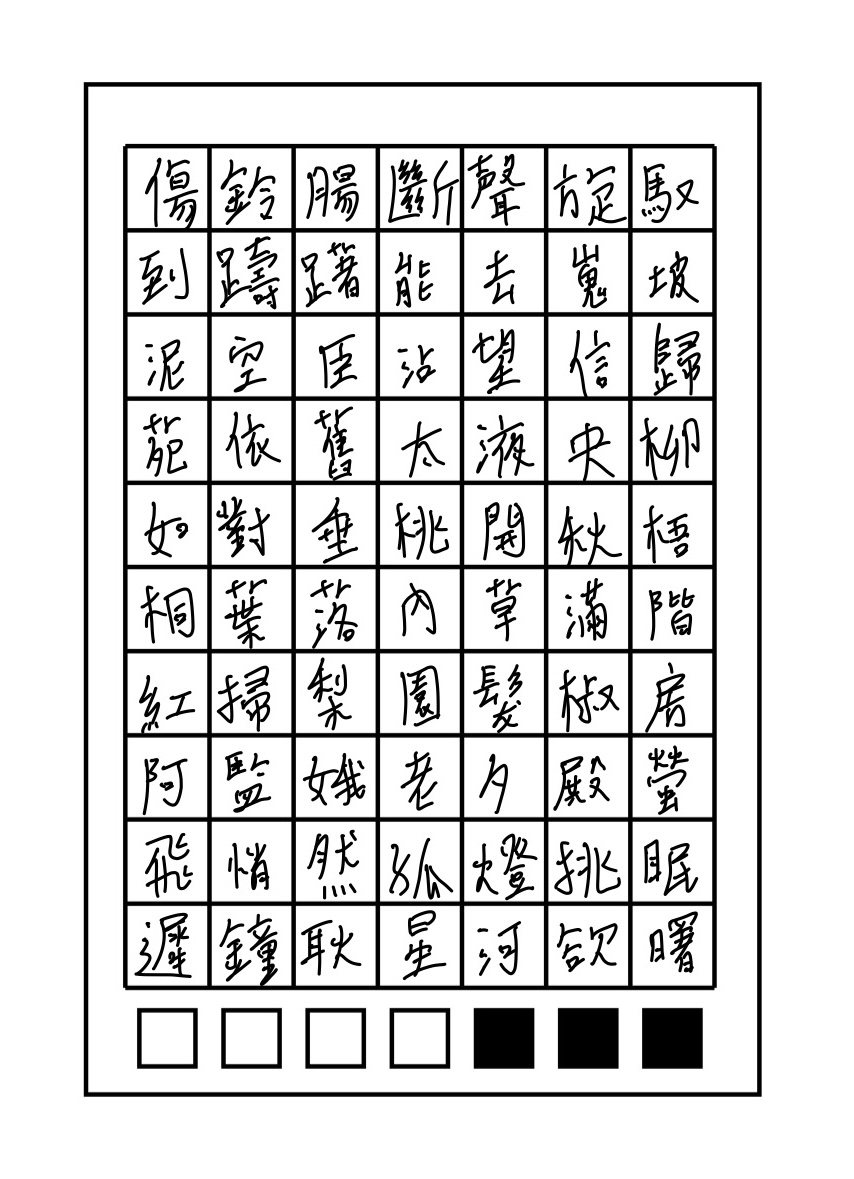 傷鈴腸斷聲旋馭
到躊躇能去嵬坡
泥空臣沾望信歸
苑依舊太液央柳
如對垂桃開秋梧
桐葉落內草滿階
紅掃梨園鬢椒房
阿監娥老夕殿螢
飛悄然孤燈挑眠
遲鐘耿星河欲曙